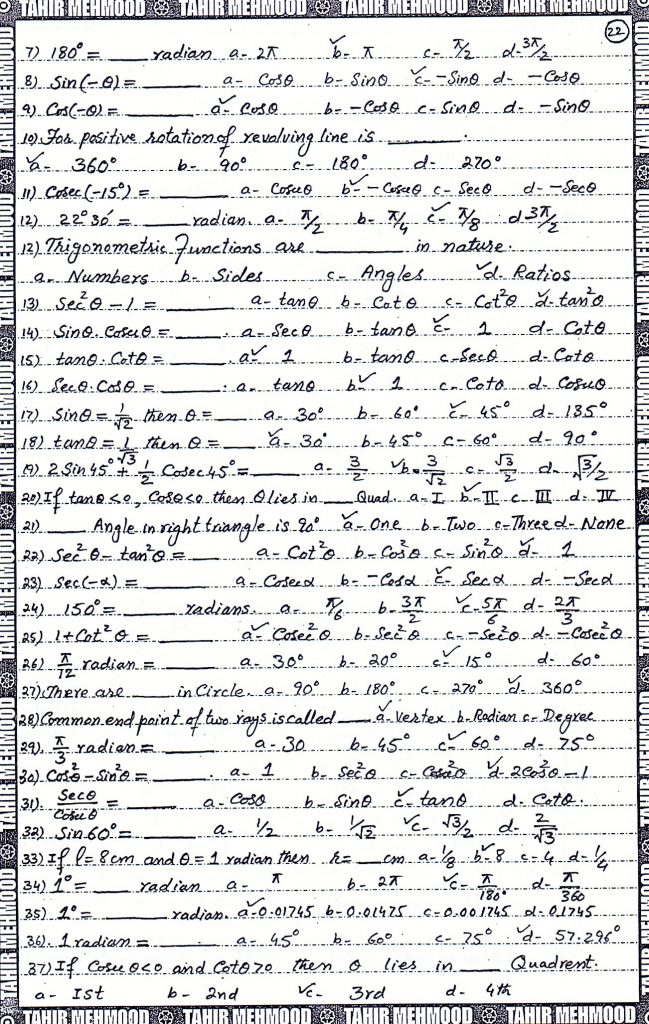 TAHIR MEHMOOD TAHIR MEHMOOD TAHIR MEHMOOD TAHIR MEHMOOD
22
7) 180° = ____ radian a- 2π ✓b- π c- π/2 d- 3π/2
8) Sin(-θ) = ____ a- Cosθ b- Sinθ ✓c- -Sinθ d- -Cosθ
9) Cos(-θ) = ____ a✓ Cosθ b- -Cosθ c- Sinθ d- -Sinθ
10) For positive rotation of revolving line is ____.
✓a- 360° b- 90° c- 180° d- 270°
11) Cosec(-15°) = ____ a- Cosecθ b✓ -Cosecθ c- Secθ d- -Secθ
12) 22°30′ = ____ radian. a- π/2 b- π/4 ✓c- π/8 d- 3π/2
12) Trigonometric Functions are ____ in nature.
a- Numbers b- Sides c- Angles ✓d- Ratios
13) Sec²θ - 1 = ____ a- tanθ b- Cotθ c- Cot²θ ✓d- tan²θ
14) Sinθ. Cosecθ = ____. a- Secθ b- tanθ ✓c- 1 d- Cotθ
15) tanθ. Cotθ = ____. a✓ 1 b- tanθ c- Secθ d- Cotθ
16) Secθ. Cosθ = ____: a- tanθ b✓ 1 c- Cotθ d- Cosecθ
17) Sinθ = 1/√2 then θ = ____ a- 30° b- 60° ✓c- 45° d- 135°
18) tanθ = 1/√3 then θ = ____ ✓a- 30° b- 45° c- 60° d- 90°
19) 2 Sin45° + 1/2 Cosec45° = ____ a- 3/2 ✓b- 3/√2 c- √3/2 d- √3/2
20) If tanθ<0, Cosθ<0 then θ lies in ____ Quad. a- I ✓b- II c- III d- IV
21) ____ Angle in right triangle is 90° ✓a- One b- Two c- Three d- None
22) Sec²θ - tan²θ = ____ a- Cot²θ b- Cos²θ c- Sin²θ ✓d- 1
23) Sec(-α) = ____ a- Cosecα b- -Cosα ✓c- Secα d- -Secα
24) 150° = ____ radians. a- π/6 b- 3π/2 ✓c- 5π/6 d- 2π/3
25) 1+Cot²θ = ____ a✓ Cosec²θ b- Sec²θ c- -Sec²θ d- -Cosec²θ
26) π/12 radian = ____ a- 30° b- 20° c✓ 15° d- 60°
27) There are ____ in Circle. a- 90° b- 180° c- 270° ✓d- 360°
28) Common end point of two rays is called ____ ✓a- Vertex b- Radian c- Degree
29). π/3 radian = ____ a- 30 b- 45° c✓ 60° d- 75°
30) Cos²θ - Sin²θ = ____. a- 1 b- Sec²θ c- ✓d- 2Cos²θ - 1
31). Secθ/Cosecθ = ____ a- Cosθ b- Sinθ ✓c- tanθ d- Cotθ.
32) Sin60° = ____ a- 1/2 b- 1/√2 ✓c- √3/2 d- 2/√3
33) If l = 8cm and θ = 1 radian then r = ____ cm a- 1/8 ✓b- 8 c- 4 d- 1/4
34) 1° = ____ radian a- π b- 2π ✓c- π/180° d- π/360
35) 1° = ____ radian. a✓ 0.01745 b- 0.01475 c- 0.001745 d- 0.1745
36). 1 radian = ____. a- 45° b- 60° c- 75° ✓d- 57.296°
37) If Cosecθ<0 and Cotθ>0 then θ lies in ____ Quadrent.
a- Ist b- 2nd ✓c- 3rd d- 4th
TAHIR MEHMOOD TAHIR MEHMOOD TAHIR MEHMOOD TAHIR MEHMOOD